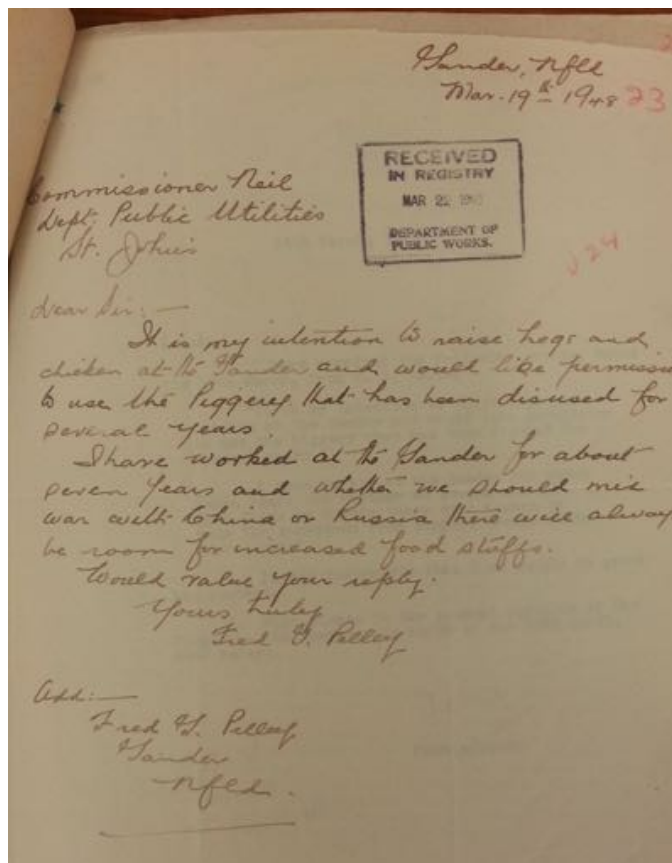 Gander, Nfld
Mar. 19th 1948 23
RECEIVED
IN REGISTRY
MAR 22
DEPARTMENT OF
PUBLIC WORKS.
Commissioner Neil
Dept. Public Utilities
St. John's
24
Dear Sir:—
It is my intention to raise hogs and
chicken at the Gander and would like permissio
to use the Piggery that has been disused for
several years.
I have worked at the Gander for about
seven years and whether we should
war with China or Russia there will alway
be room for increased food stuffs.
Would value your reply.
Yours truly
Fred G. Pelley
Add:—
Fred G. Pelley
Gander
Nfld.